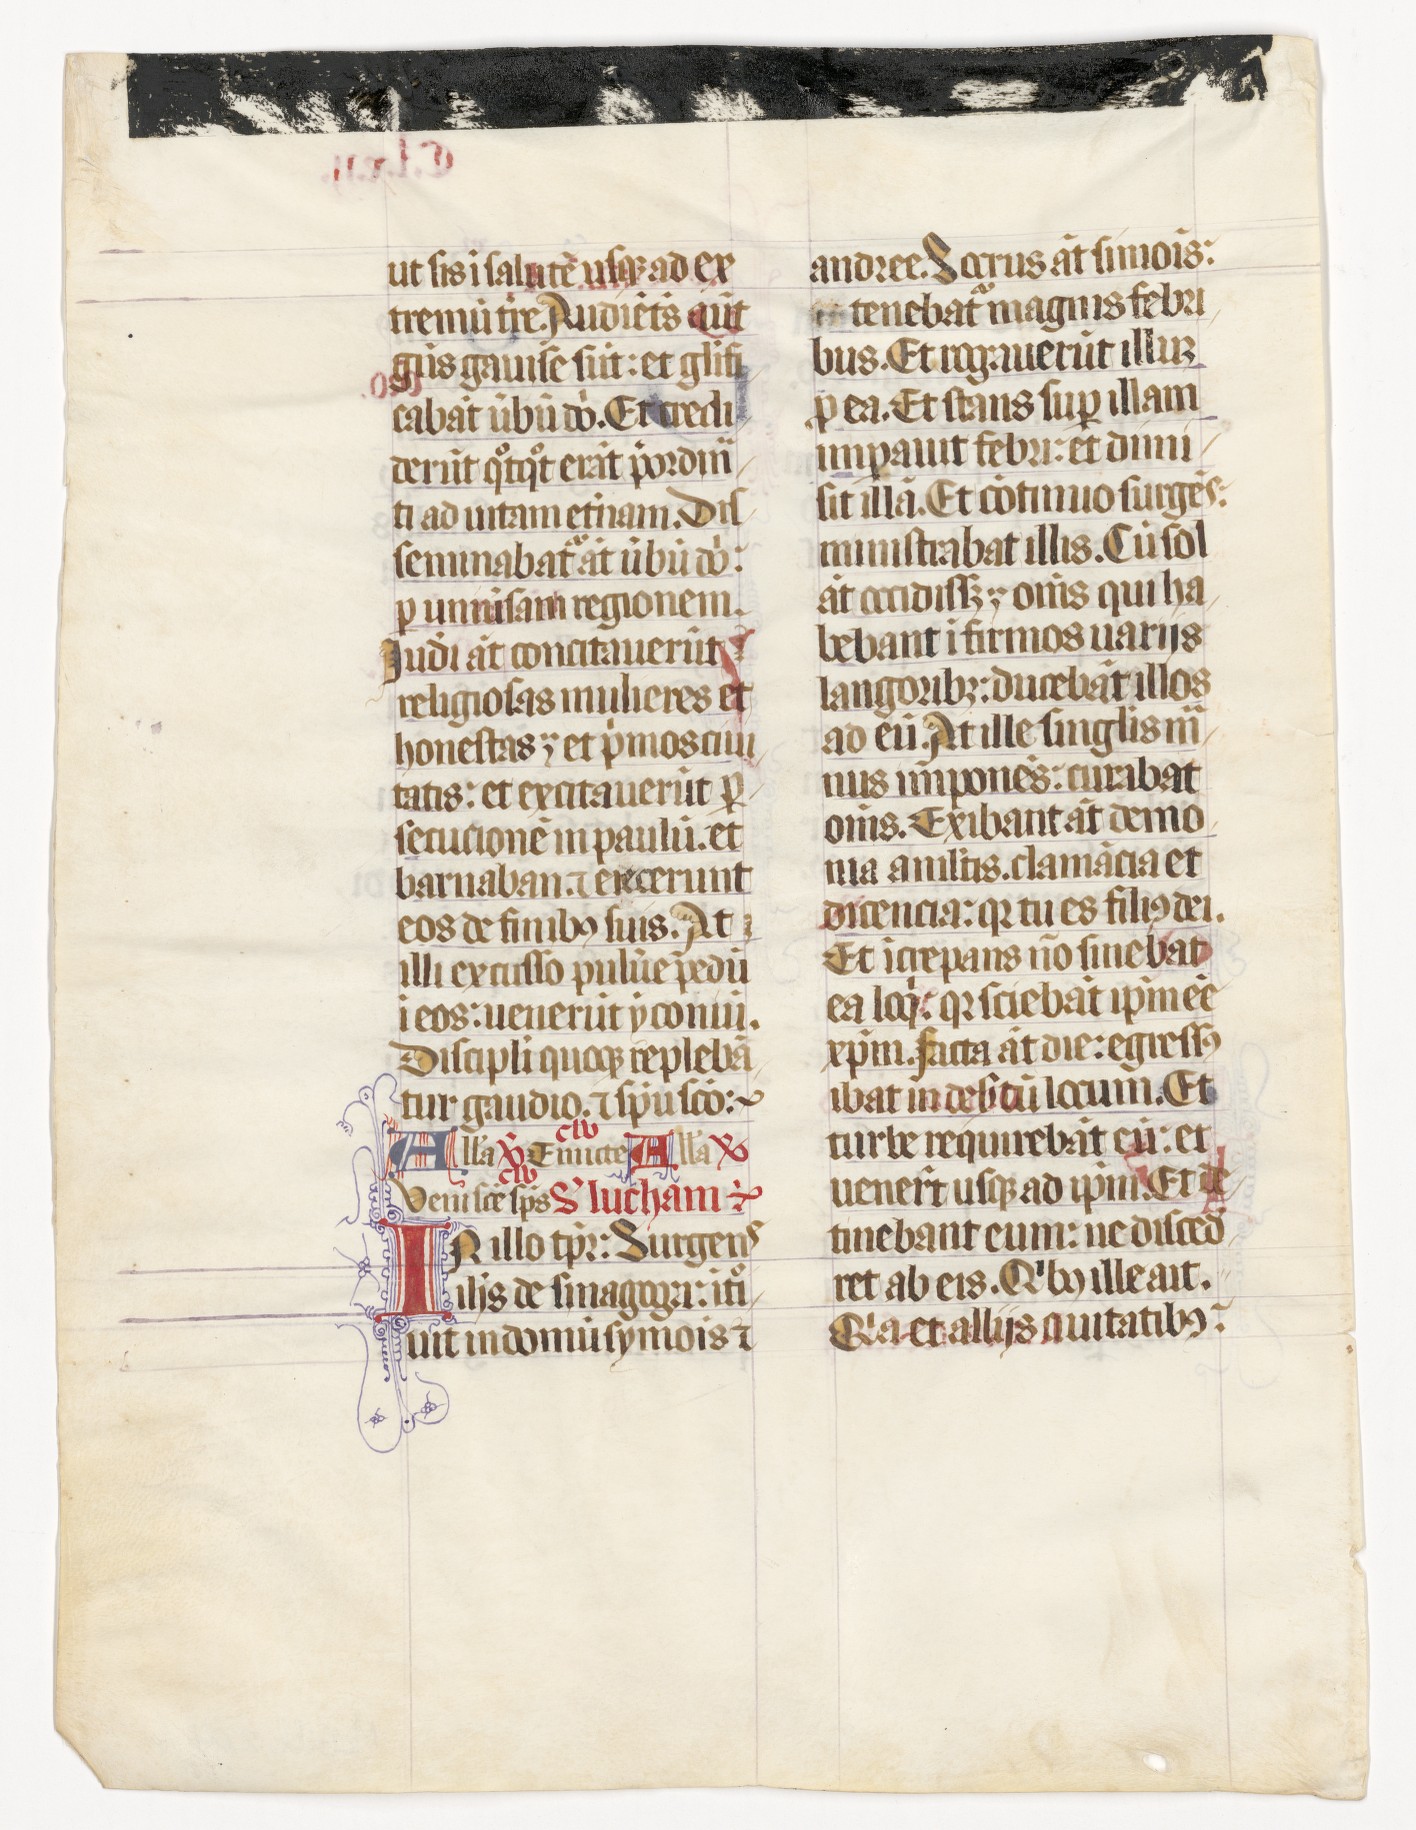 ut sis ī salutē usq₃ ad ex
tremū tr̄e. Audiēts aūt
gn̄s gauise sūt: et gl̄ifi
cabāt ūbū dō. Et credi
derūt qͦtqͦt erāt p̄ordin̄
ti ad uitam et̄nam. Dis
seminabat᷒ āt ūbū dō:
p uniūsam regionem.
Iudi āt concitauerūt
religiosas mulieres et
honestas; et p̄mos ciui
tatis: et excitauerūt p̄
secucionē in paulū. et
barnaban. ⁊ eiecerunt
eos de finibꝰ suis. At
illi excusso puluēe pedū
ī eos: uenerūt yconiū.
Discipli quoq₃ replebā
tur gaudio. ⁊ sp̄u sc̄o:~
Alla ℣ Emicte Alla ℣
Veni sc̄e sp̄s S' lucham
IN illo tp̄r: Surgens
ih̄s de sinagoga: ītͦi
uit in domū symois ⁊
andree. Socrus āt simōis:
tenebat᷒ magnis febri
bus. Et rogauerūt illuꝫ
p ea. Et stans suꝑ illam
imꝑauit febri: et dimi
sit illā. Et cōtinuo surgēs:
ministrabat illis. Cū sol
āt occidissꝫ; om̄s qui ha
bebant īfirmos uarijs
langoribꝫ: ducebāt illos
ad eū. At ille singl̄is m̄
nus imponēs: curabat
om̄s. Exibant āt demo
nia a ml̄tis. clamācia et
dicencia: qꝛ tu es filiꝰ dei.
Et īcrepans nō sinebat
ea loq': qꝛ sciebāt ip̄m eē
xp̄m. facta āt die: egressꝰ
ibat in desētū locum. Et
turbe requirebāt eū: et
uener̄t usq₃ ad ip̄m. Et de
tinebant eum: ne disced
ret ab eis. Qͥbꝰ ille ait.
Qͥa et alijs ciuitatibꝰ: